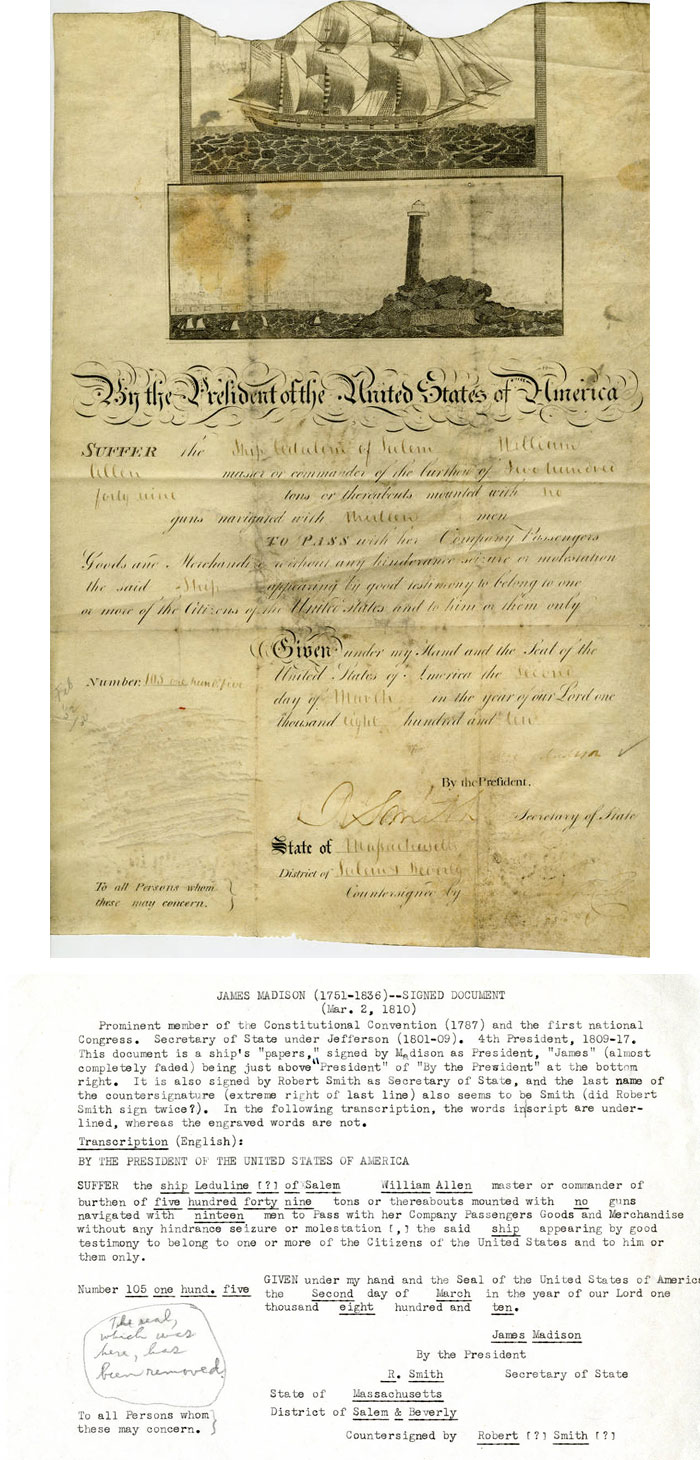 By the President of the United States of America
SUFFER the Ship of Salem William
Allen master or commander of the burthen of Five hundred
forty nine tons or thereabouts mounted with no
guns navigated with men
TO PASS with her Company Passengers
Goods and Merchandize without any hinderance seizure or molestation
the said Ship appearing by good testimony to belong to one
or more of the Citizens of the United States and to him or them only
Given under my Hand and the Seal of the
United States of America the Second
Number 105 one hund. five
day of March in the year of our Lord one
thousand eight hundred and ten
By the President.
R Smith Secretary of State
State of Massachusetts
District of Salem & Beverly
To all Persons whom
these may concern.
Countersigned by
JAMES MADISON (1751-1836)--SIGNED DOCUMENT
(Mar. 2, 1810)
Prominent member of the Constitutional Convention (1787) and the first national
Congress. Secretary of State under Jefferson (1801-09). 4th President, 1809-17.
This document is a ship's "papers," signed by Madison as President, "James" (almost
completely faded) being just above "President" of "By the President" at the bottom
right. It is also signed by Robert Smith as Secretary of State, and the last name of
the countersignature (extreme right of last line) also seems to be Smith (did Robert
Smith sign twice?). In the following transcription, the words inscript are under-
lined, whereas the engraved words are not.
Transcription (English):
BY THE PRESIDENT OF THE UNITED STATES OF AMERICA
SUFFER the ship Leduline [?] of Salem William Allen master or commander of
burthen of five hundred forty nine tons or thereabouts mounted with no guns
navigated with ninteen men to Pass with her Company Passengers Goods and Merchandise
without any hindrance seizure or molestation [,] the said ship appearing by good
testimony to belong to one or more of the Citizens of the United States and to him or
them only.
GIVEN under my hand and the Seal of the United States of America
Number 105 one hund. five the Second day of March in the year of our Lord one
thousand eight hundred and ten.
The seal,
which was
here, has
been removed.
James Madison
By the President
R. Smith Secretary of State
State of Massachusetts
To all Persons whom District of Salem & Beverly
these may concern.
Countersigned by Robert [?] Smith [?]